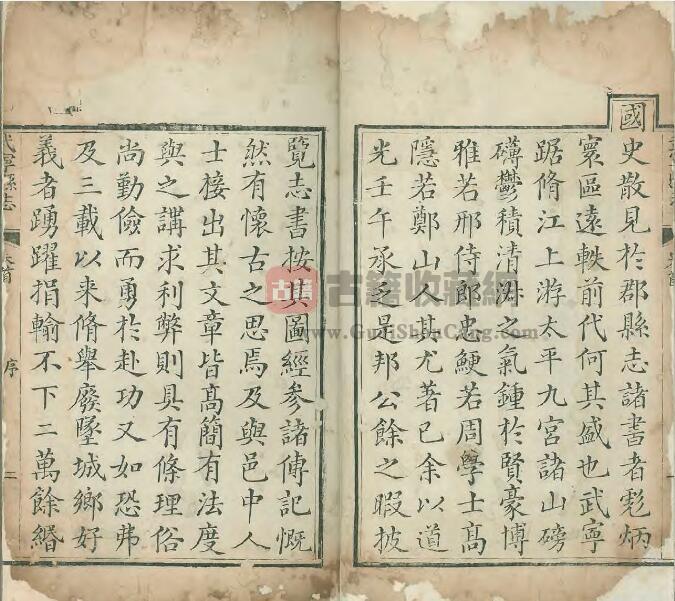 國史散見於郡縣志諸書者彪炳
寰區遠軼前代何其盛也武寧
踞脩江上游太平九宮諸山磅
礴鬱積清淑之氣鍾於賢豪博
雅若邢侍郎忠鯁若周學士高
隱若鄭山人其尤著已余以道
光壬午承乏是邦公餘之暇披
覽志書按其圖經參諸傳記慨
然有懷古之思焉及與邑中人
士接出其文章皆高簡有法度
與之講求利弊則具有條理俗
尚勤儉而勇於赴功又如恐弗
及三載以來脩舉廢墜城鄉好
義者踴躍捐輸不下二萬餘緡
武寧縣志
卷首
序
二
古籍收藏網
www.GuJiShouCang.com